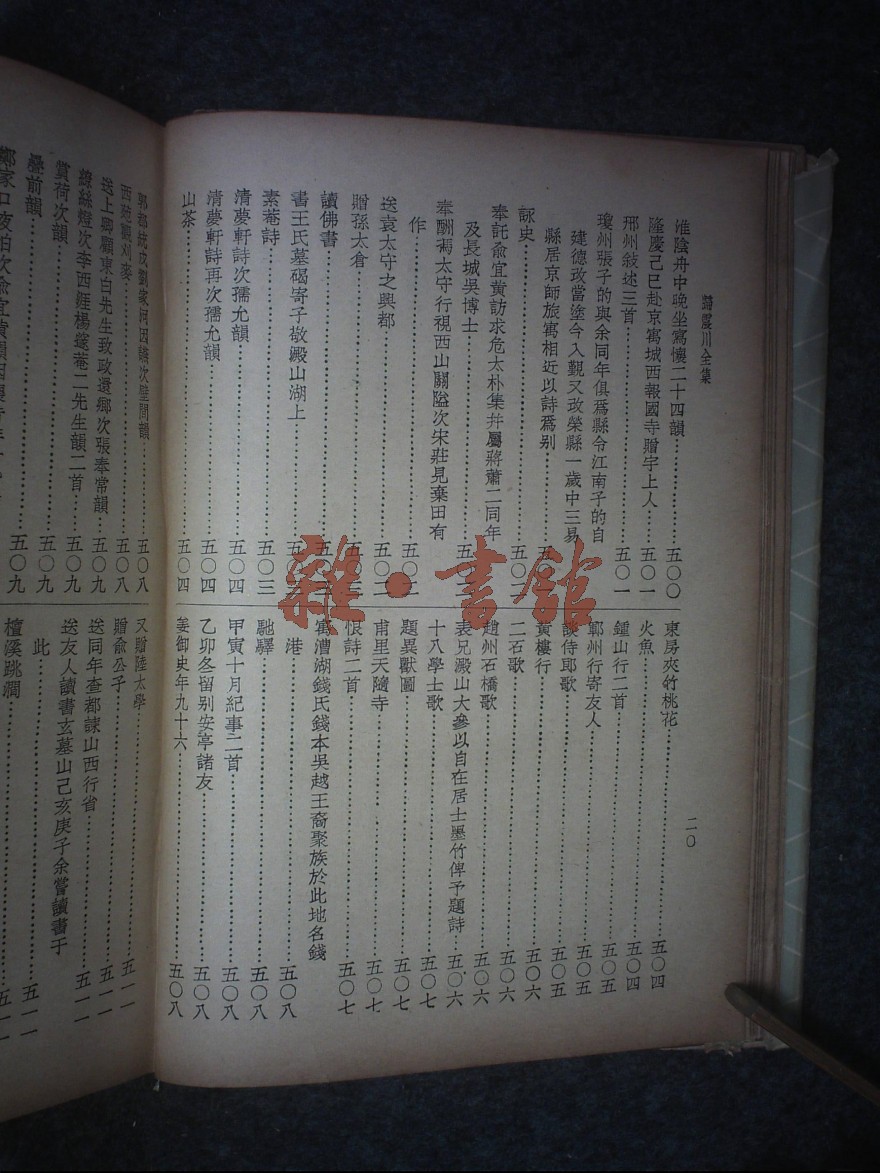 歸震川全集
二〇
淮陰舟中晚坐寫懷二十四韻……五〇〇
隆慶己巳赴京寓城西報國寺贈宇上人……五〇一
邢州敍述三首……五〇一
瓊州張子的與余同年俱爲縣令江南子的自
建德改當塗今入覲又改榮縣一歲中三易
縣居京師旅寓相近以詩爲別……五
詠史……五〇二
奉託俞宜黃訪求危太朴集幷屬蔣蕭二同年
及長城吳博士……五〇二
奉酬馮太守行視西山關隘次宋莊見棄田有
作……五〇二
送袁太守之興都……五〇二
贈孫太倉……五〇三
讀佛書……五〇
書王氏墓碣寄子敬殿山湖上……五〇
素菴詩……五〇三
清夢軒詩次孺允韻……五〇四
清夢軒詩再次孺允韻……五〇四
山茶……五〇四
東房夾竹桃花……五〇四
火魚……五〇四
鍾山行二首……五〇五
鄆州行寄友人……五〇五
談侍郎歌……五〇五
黃樓行……五〇六
二石歌……五〇六
趙州石橋歌……五〇六
表兄澱山大參以自在居士墨竹俾予題詩……五〇六
十八學士歌……五〇七
題異獸圖……五〇七
甫里天隨寺……五〇七
恨詩二首……五〇七
寓漕湖錢氏錢本吳越王裔聚族於此地名錢
港……五〇八
馳驛……五〇八
甲寅十月紀事二首……五〇八
乙卯冬留別安亭諸友……五〇八
姜御史年九十六……五〇八
郭都統戍劉家河因議次壁間韻……五〇八
西苑觀刈麥……五〇八
送上卿顧東白先生致政還鄉次張奉常韻……五〇九
綠絲燈次李西涯楊邃菴二先生韻二首……五〇九
賞荷次韻……五〇九
疊前韻……五〇九
鄭家口夜泊次俞宜黃韻因
又贈陸太學……五一一
贈俞公子……五一一
送同年查都諫山西行省……五一一
送友人讀書玄墓山己亥庚子余嘗讀書于
此……五一一
檀溪跳澗……五一一
雜·書舘